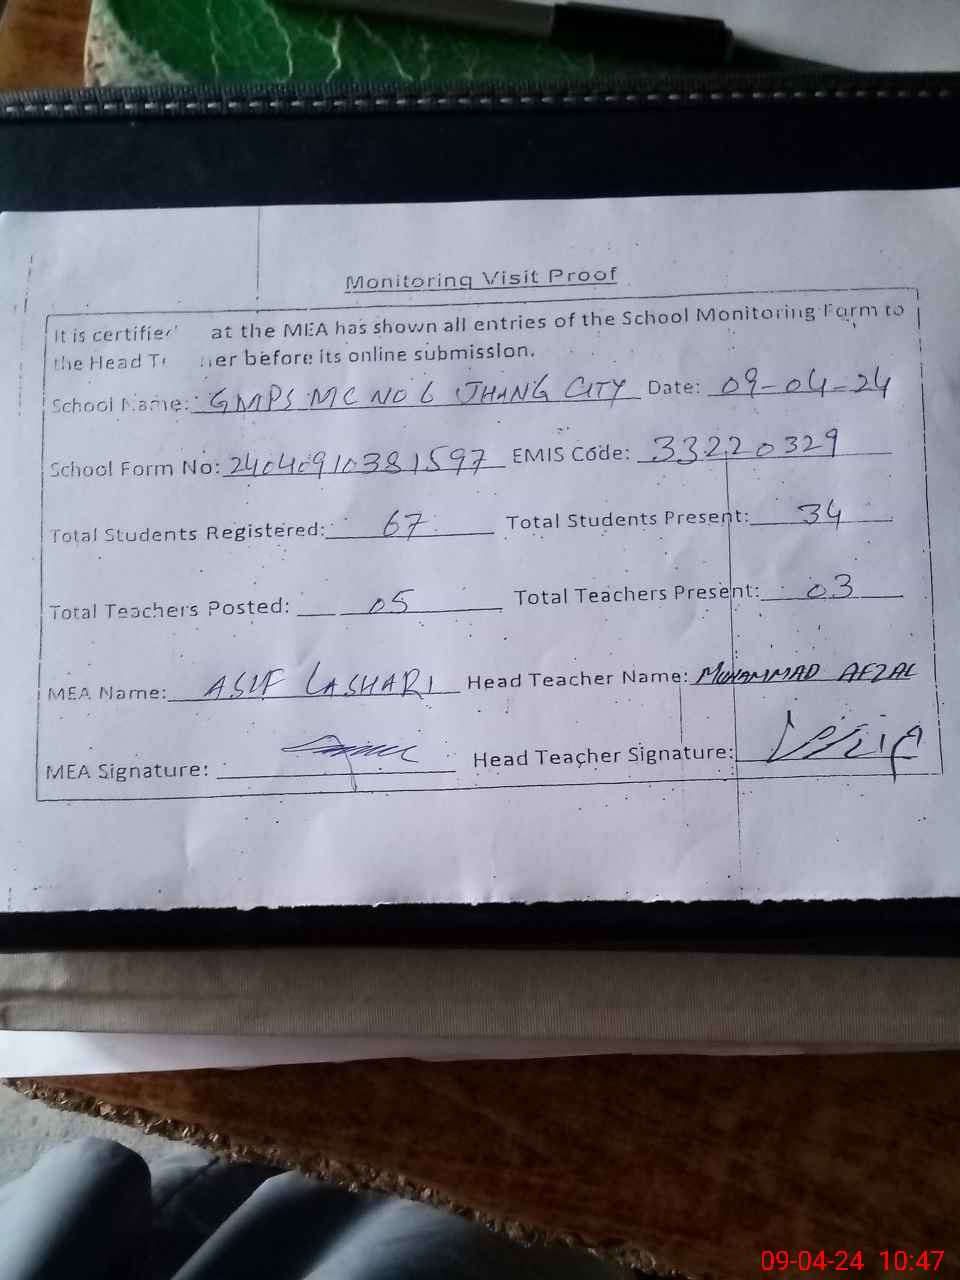 Monitoring Visit Proof
It is certified at the MEA has shown all entries of the School Monitoring Form to
the Head Te her before its online submission.
School Name: GMPS MC NO 6 JHANG CITY Date: 09-04-24
School Form No: 2404091038 1597 EMIS Code: 33220329
Total Students Registered: 67 Total Students Present: 34
Total Teachers Posted: 05 Total Teachers Present: 03
MEA Name: ASIF LASHARI Head Teacher Name: MUHAMMAD AFZAL
MEA Signature: Head Teacher Signature:
09-04-24 10:47